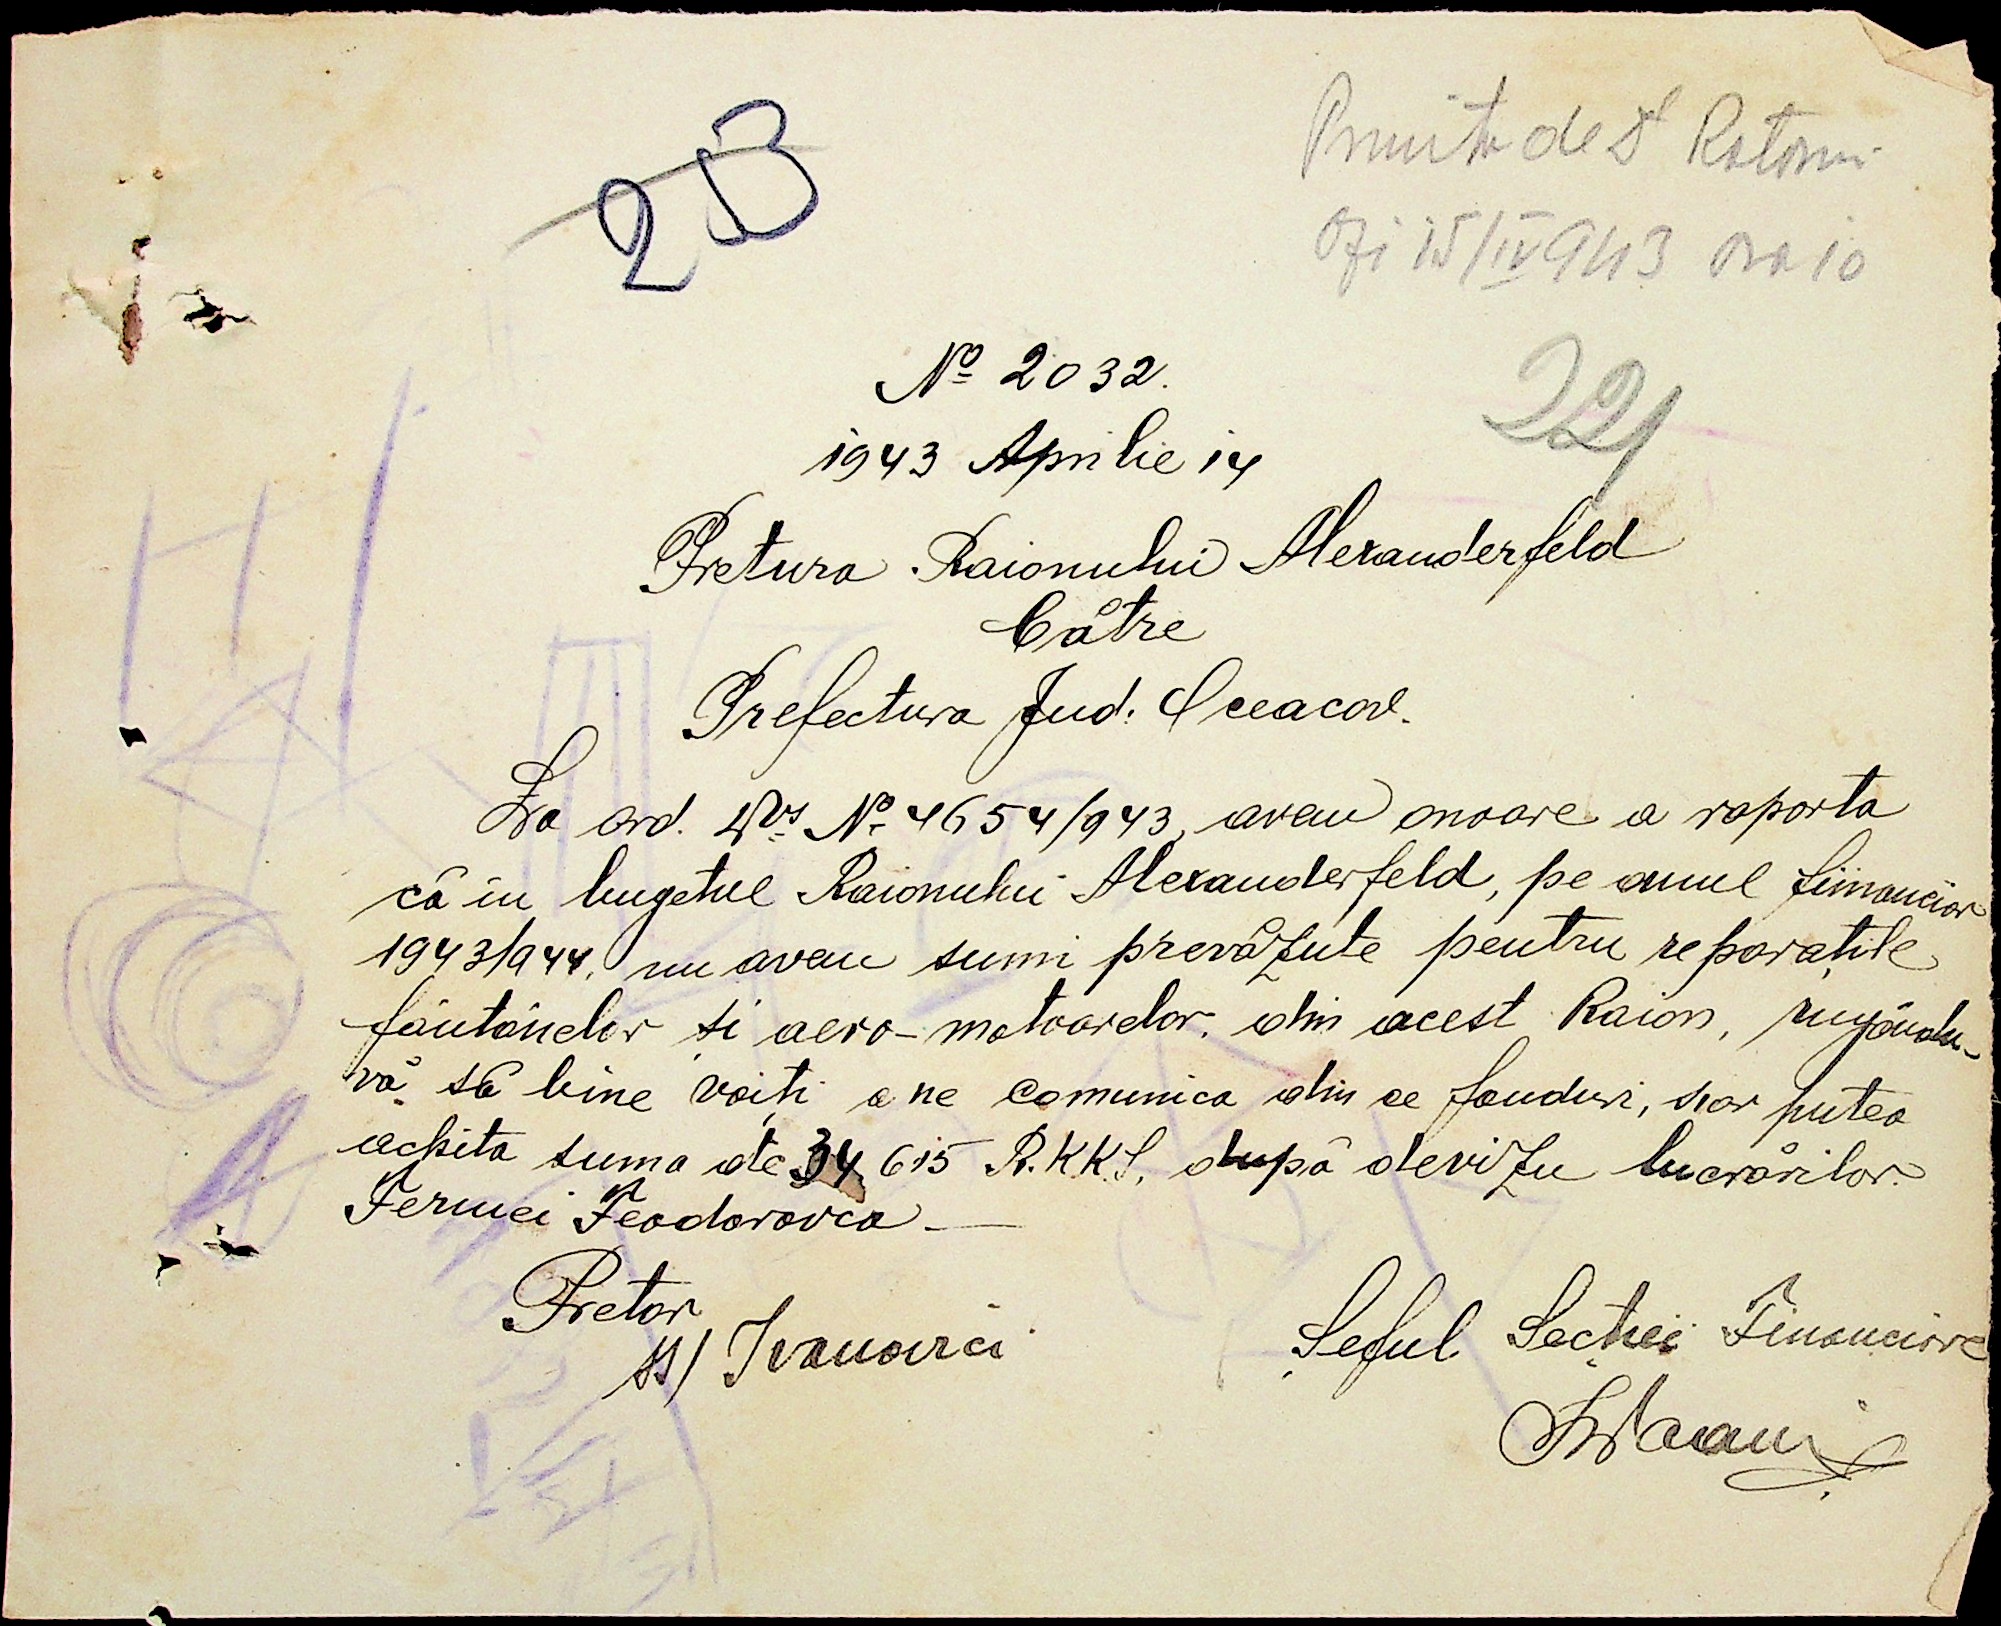 23
Primita de Dl Ratoniu
Ozi 15/IV 943 ora 10
No 2032.
221
1943 Aprilie 14
Pretura Raionului Alexanderfeld
Către
Prefectura Jud: Oceacov.
La ord. Dvs No 4654/943, avem onoare a raporta
că în bugetul Raionului Alexanderfeld, pe anul finnanciar
1943/944, nu avem sumi prevăzute pentru reparațile
fântânelor și aero-motoarelor. din acest Raion, rugându-
vă să bine voiți a ne comunica din ce fonduri, s'ar putea
achita suma de 34 615 R.K.K.S. după devizu lucrărilor
Fermei Feodorovca -
Pretor
ss/ Ivanovici
Șeful Secției Financiare